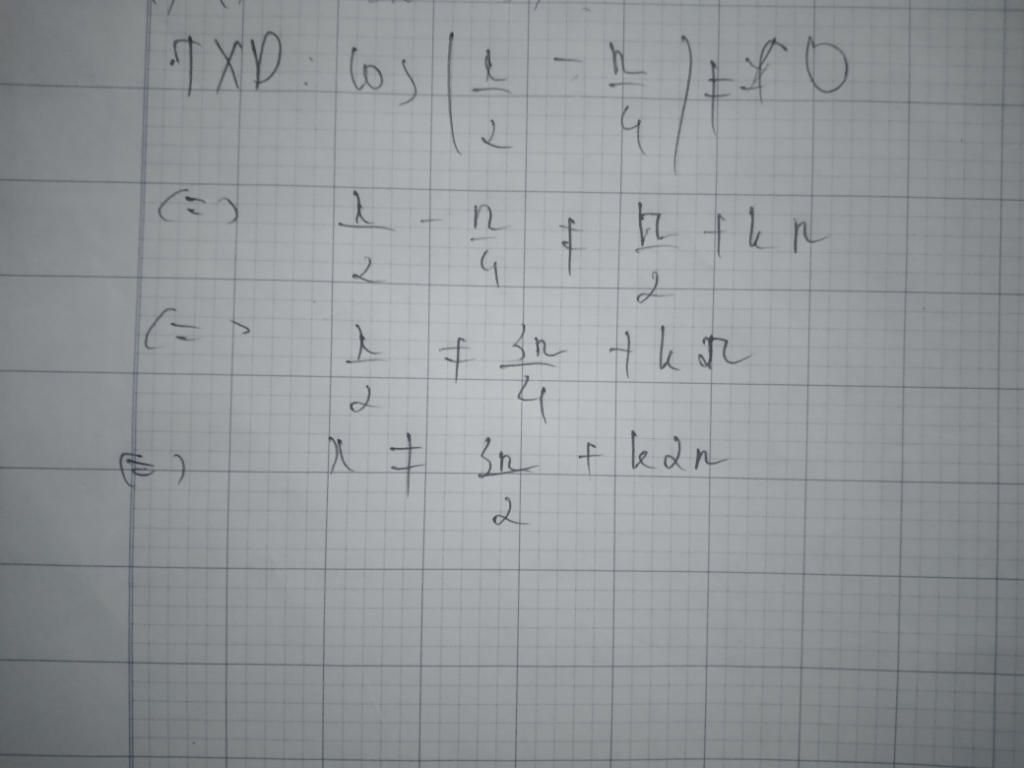 TXD: cos(x/2 - π/4) ≠ 0
<=> x/2 - π/4 ≠ π/2 + kπ
<=> x/2 ≠ 3π/4 + kπ
<=> x ≠ 3π/2 + k2π